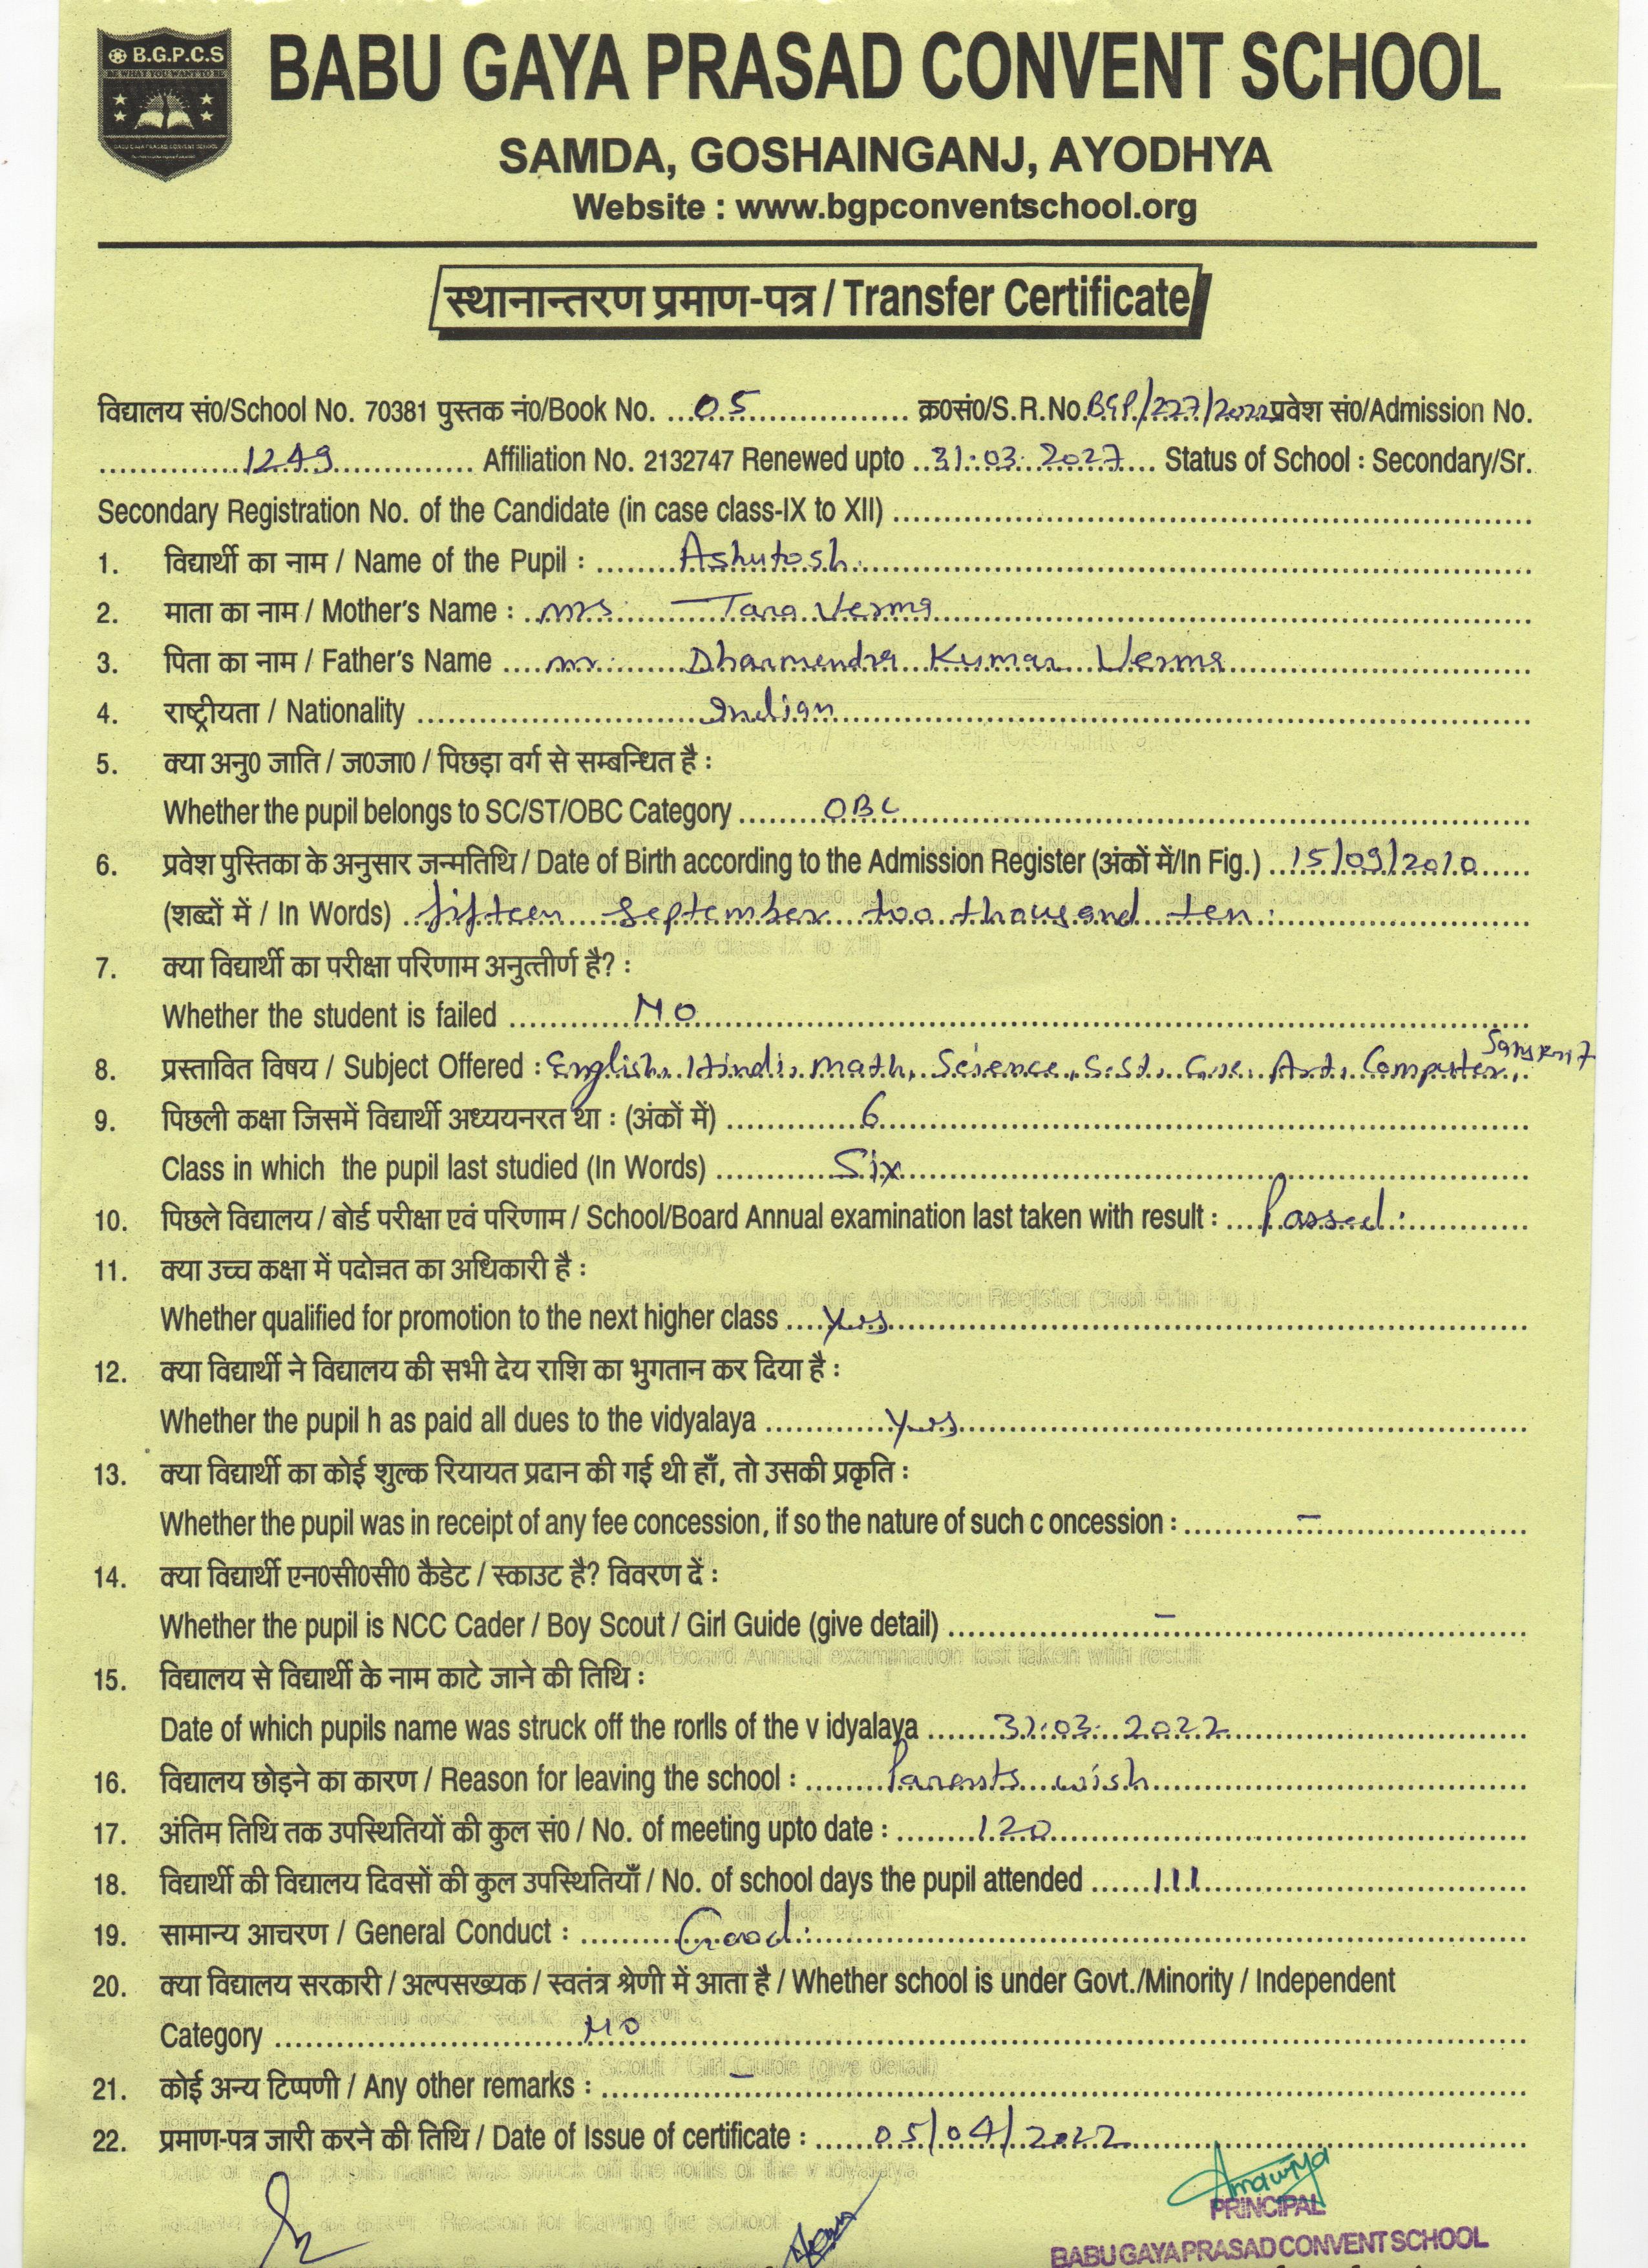 B.G.P.C.S
BE WHAT YOU WANT TO BE
BABU GAYA PRASAD CONVENT SCHOOL
BABU GAYA PRASAD CONVENT SCHOOL
SAMDA, GOSHAINGANJ, AYODHYA
Website : www.bgpconventschool.org
स्थानान्तरण प्रमाण-पत्र / Transfer Certificate
विद्यालय सं0/School No. 70381 पुस्तक नं0/Book No. ...05................. क्र0सं0/S.R.No.BGP/227/2022 प्रवेश सं0/Admission No.
................1249............... Affiliation No. 2132747 Renewed upto ..31.03.2027... Status of School : Secondary/Sr.
Secondary Registration No. of the Candidate (in case class-IX to XII) ................................................
1. विद्यार्थी का नाम / Name of the Pupil : ........Ashutosh................................................
2. माता का नाम / Mother's Name : ..mrs. Tara Verma................................................
3. पिता का नाम / Father's Name ....mr. Dharmendra Kumar Verma................................
4. राष्ट्रीयता / Nationality ............................Indian................................................
5. क्या अनु0 जाति / ज0जा0 / पिछड़ा वर्ग से सम्बन्धित है :
Whether the pupil belongs to SC/ST/OBC Category .........OBC................................................
6. प्रवेश पुस्तिका के अनुसार जन्मतिथि / Date of Birth according to the Admission Register (अंकों में/In Fig.) ..15/09/2010......
(शब्दों में / In Words) ..fifteen September too thousand ten................................
7. क्या विद्यार्थी का परीक्षा परिणाम अनुत्तीर्ण है? :
Whether the student is failed ............NO................................................
8. प्रस्तावित विषय / Subject Offered : English, Hindi, math, Science, S.St., G.K., Art, Computer, Sanskrit
9. पिछली कक्षा जिसमें विद्यार्थी अध्ययनरत था : (अंकों में) .............6................................................
Class in which the pupil last studied (In Words) ...........Six................................................
10. पिछले विद्यालय / बोर्ड परीक्षा एवं परिणाम / School/Board Annual examination last taken with result : ....Passed.............
11. क्या उच्च कक्षा में पदोन्नत का अधिकारी है :
Whether qualified for promotion to the next higher class ....yes................................................
12. क्या विद्यार्थी ने विद्यालय की सभी देय राशि का भुगतान कर दिया है :
Whether the pupil h as paid all dues to the vidyalaya ............yes................................................
13. क्या विद्यार्थी का कोई शुल्क रियायत प्रदान की गई थी हाँ, तो उसकी प्रकृति :
Whether the pupil was in receipt of any fee concession, if so the nature of such c oncession : ...........–....................
14. क्या विद्यार्थी एन0सी0सी0 कैडेट / स्काउट है? विवरण दें :
Whether the pupil is NCC Cader / Boy Scout / Girl Guide (give detail) ....................–................................
15. विद्यालय से विद्यार्थी के नाम काटे जाने की तिथि :
Date of which pupils name was struck off the rorlls of the v idyalaya ......31.03.2022................................
16. विद्यालय छोड़ने का कारण / Reason for leaving the school : ........Parents wish................................
17. अंतिम तिथि तक उपस्थितियों की कुल सं0 / No. of meeting upto date : ........120................................
18. विद्यार्थी की विद्यालय दिवसों की कुल उपस्थितियाँ / No. of school days the pupil attended ......111................................
19. सामान्य आचरण / General Conduct : ..........Good................................................
20. क्या विद्यालय सरकारी / अल्पसख्यक / स्वतंत्र श्रेणी में आता है / Whether school is under Govt./Minority / Independent
Category ................................NO................................................
21. कोई अन्य टिप्पणी / Any other remarks : .............–................................................
22. प्रमाण-पत्र जारी करने की तिथि / Date of Issue of certificate : ......05/04/2022................................
PRINCIPAL
BABU GAYA PRASAD CONVENT SCHOOL